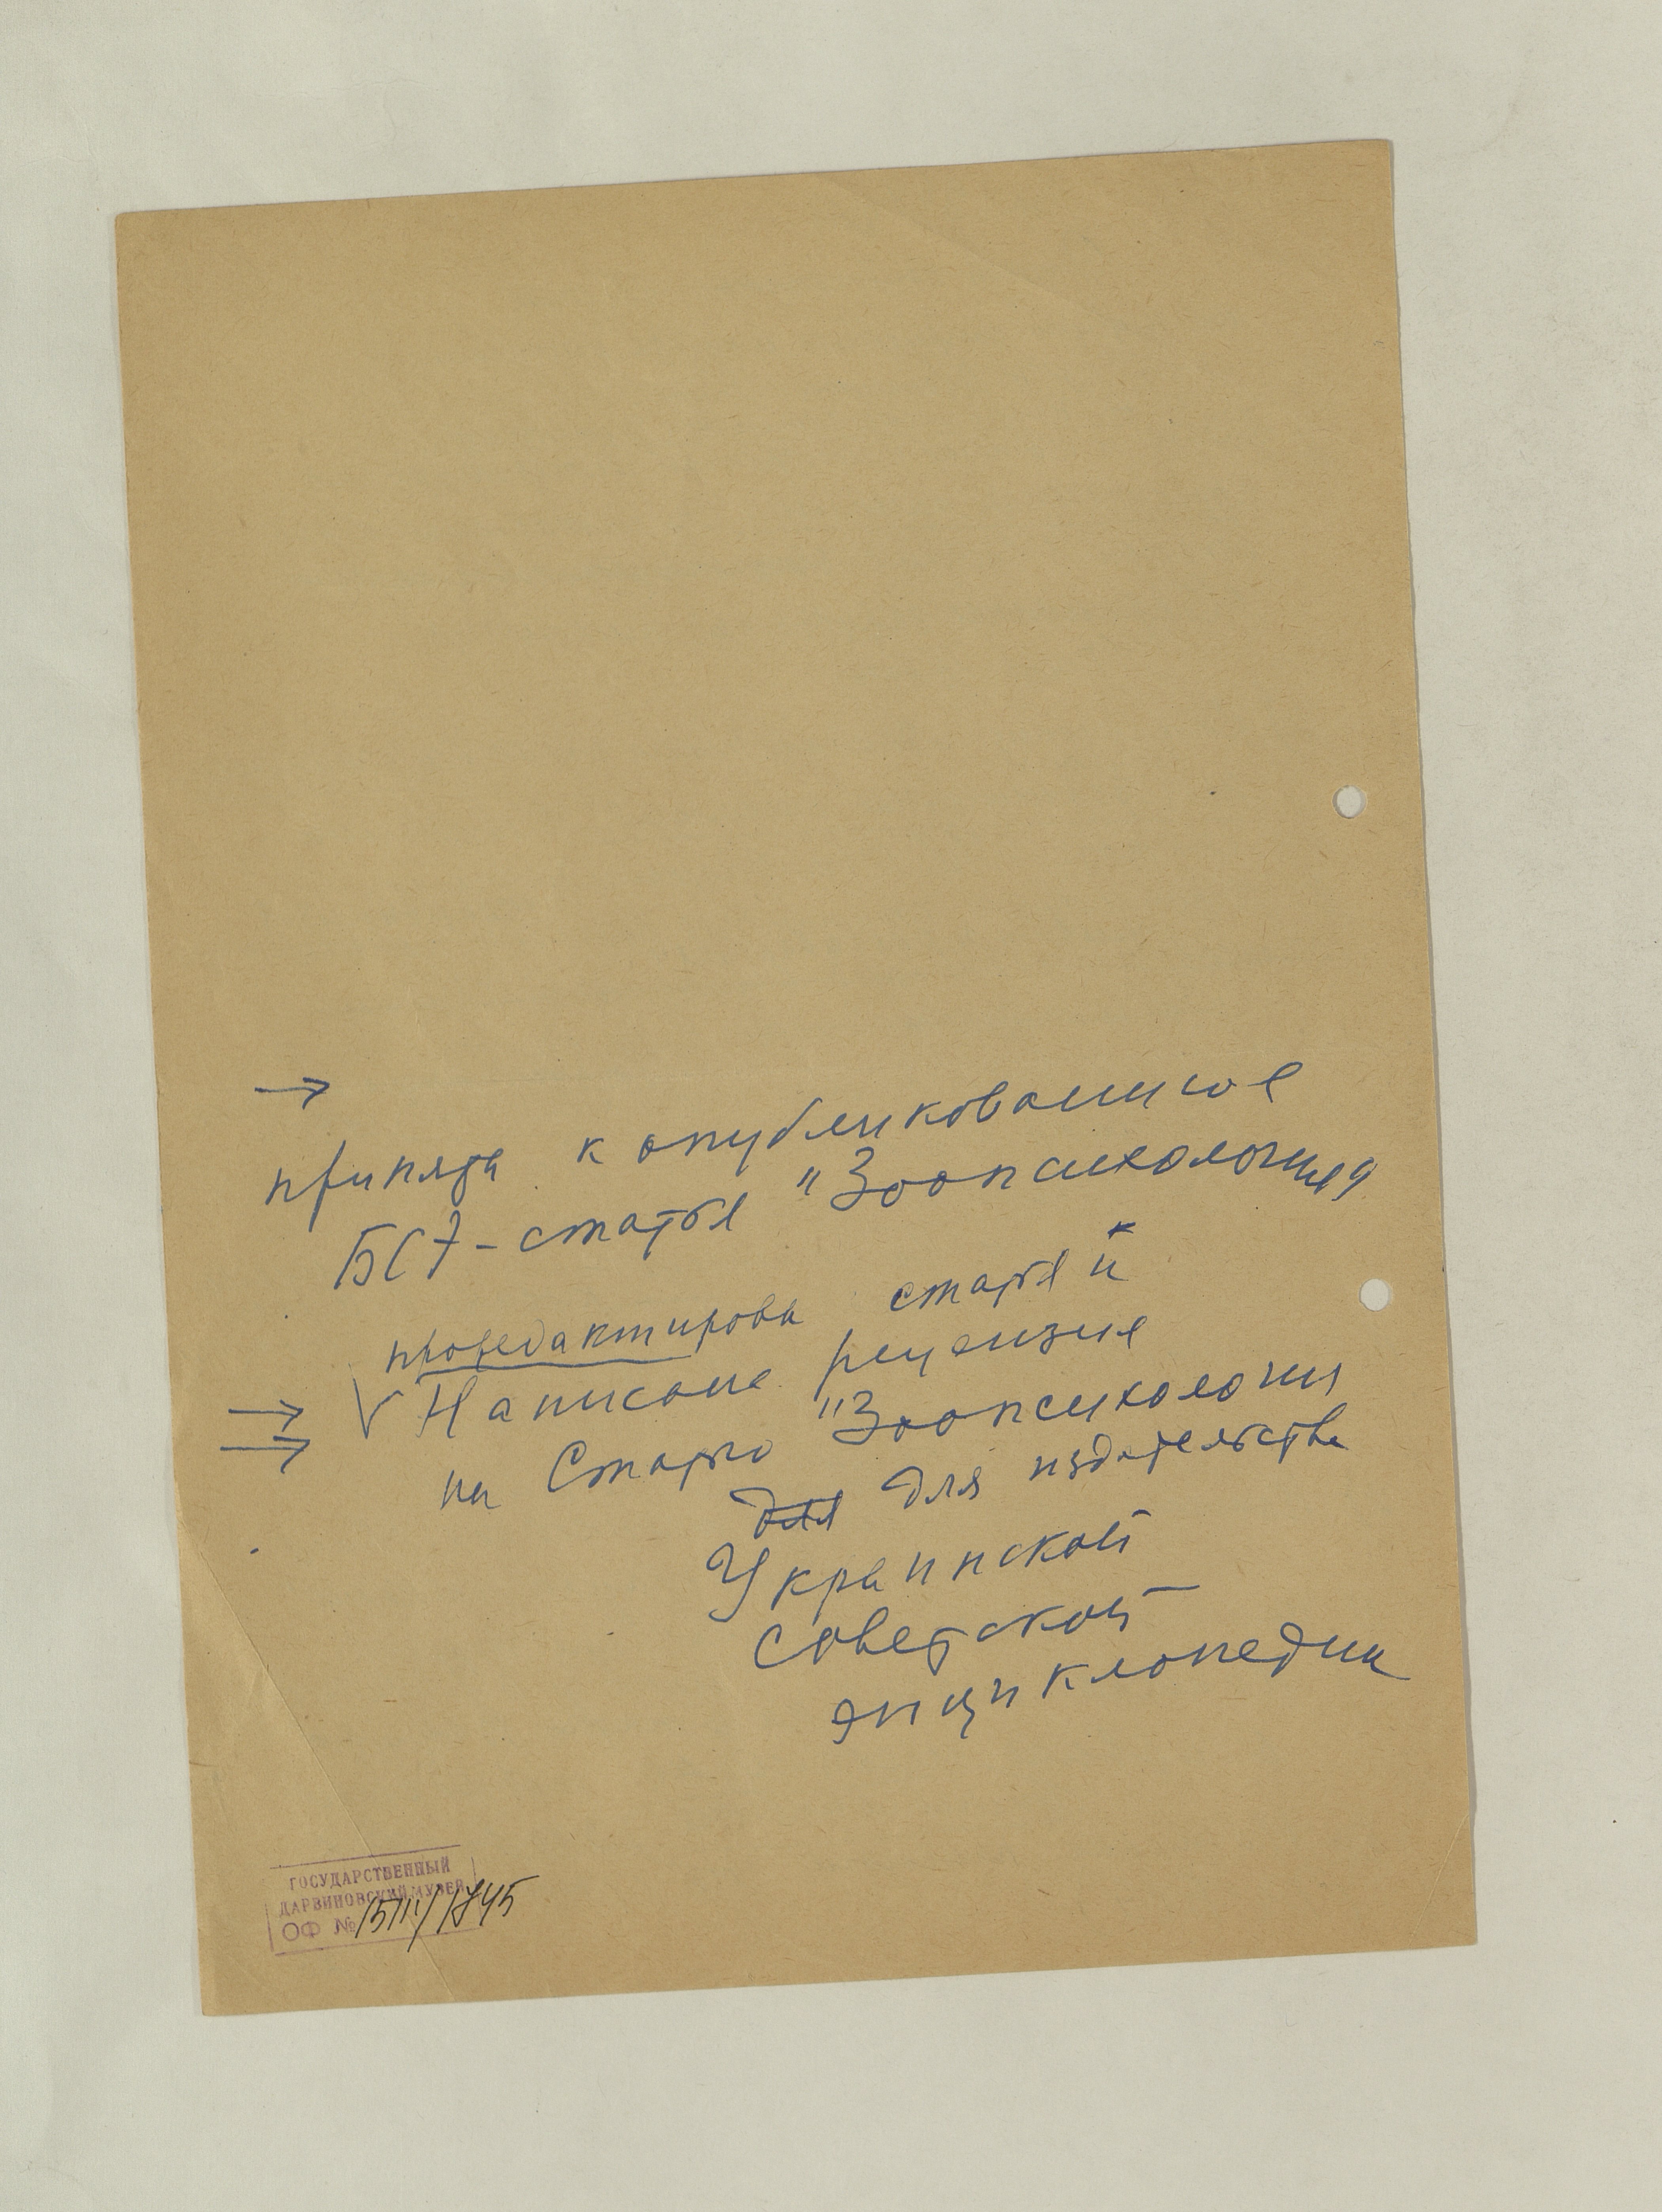 →
принята к опубликование
БСЭ - статья "Зоопсихология
проредактирова статья и
→ V Написана рецензия
→ на Статью "Зоопсихология
для для издательства
Украинской
Советской
энциклопедии
ГОСУДАРСТВЕННЫЙ
ДАРВИНОВСКИЙ МУЗЕЙ
ОФ №